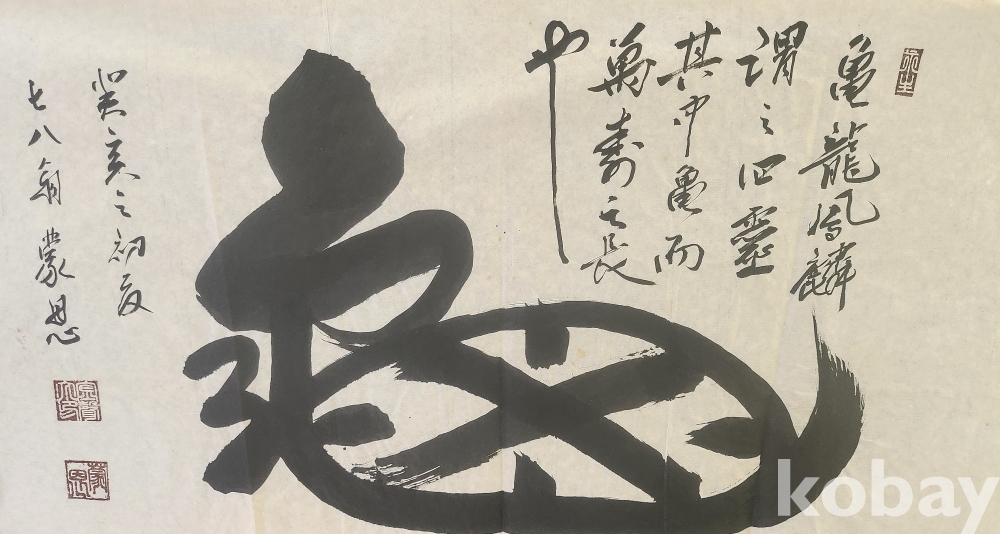 龜龍鳳麟
謂之四靈
其中龜而
萬壽之長
也
龜
癸亥之初夏
七八翁 蒙恩
kobay